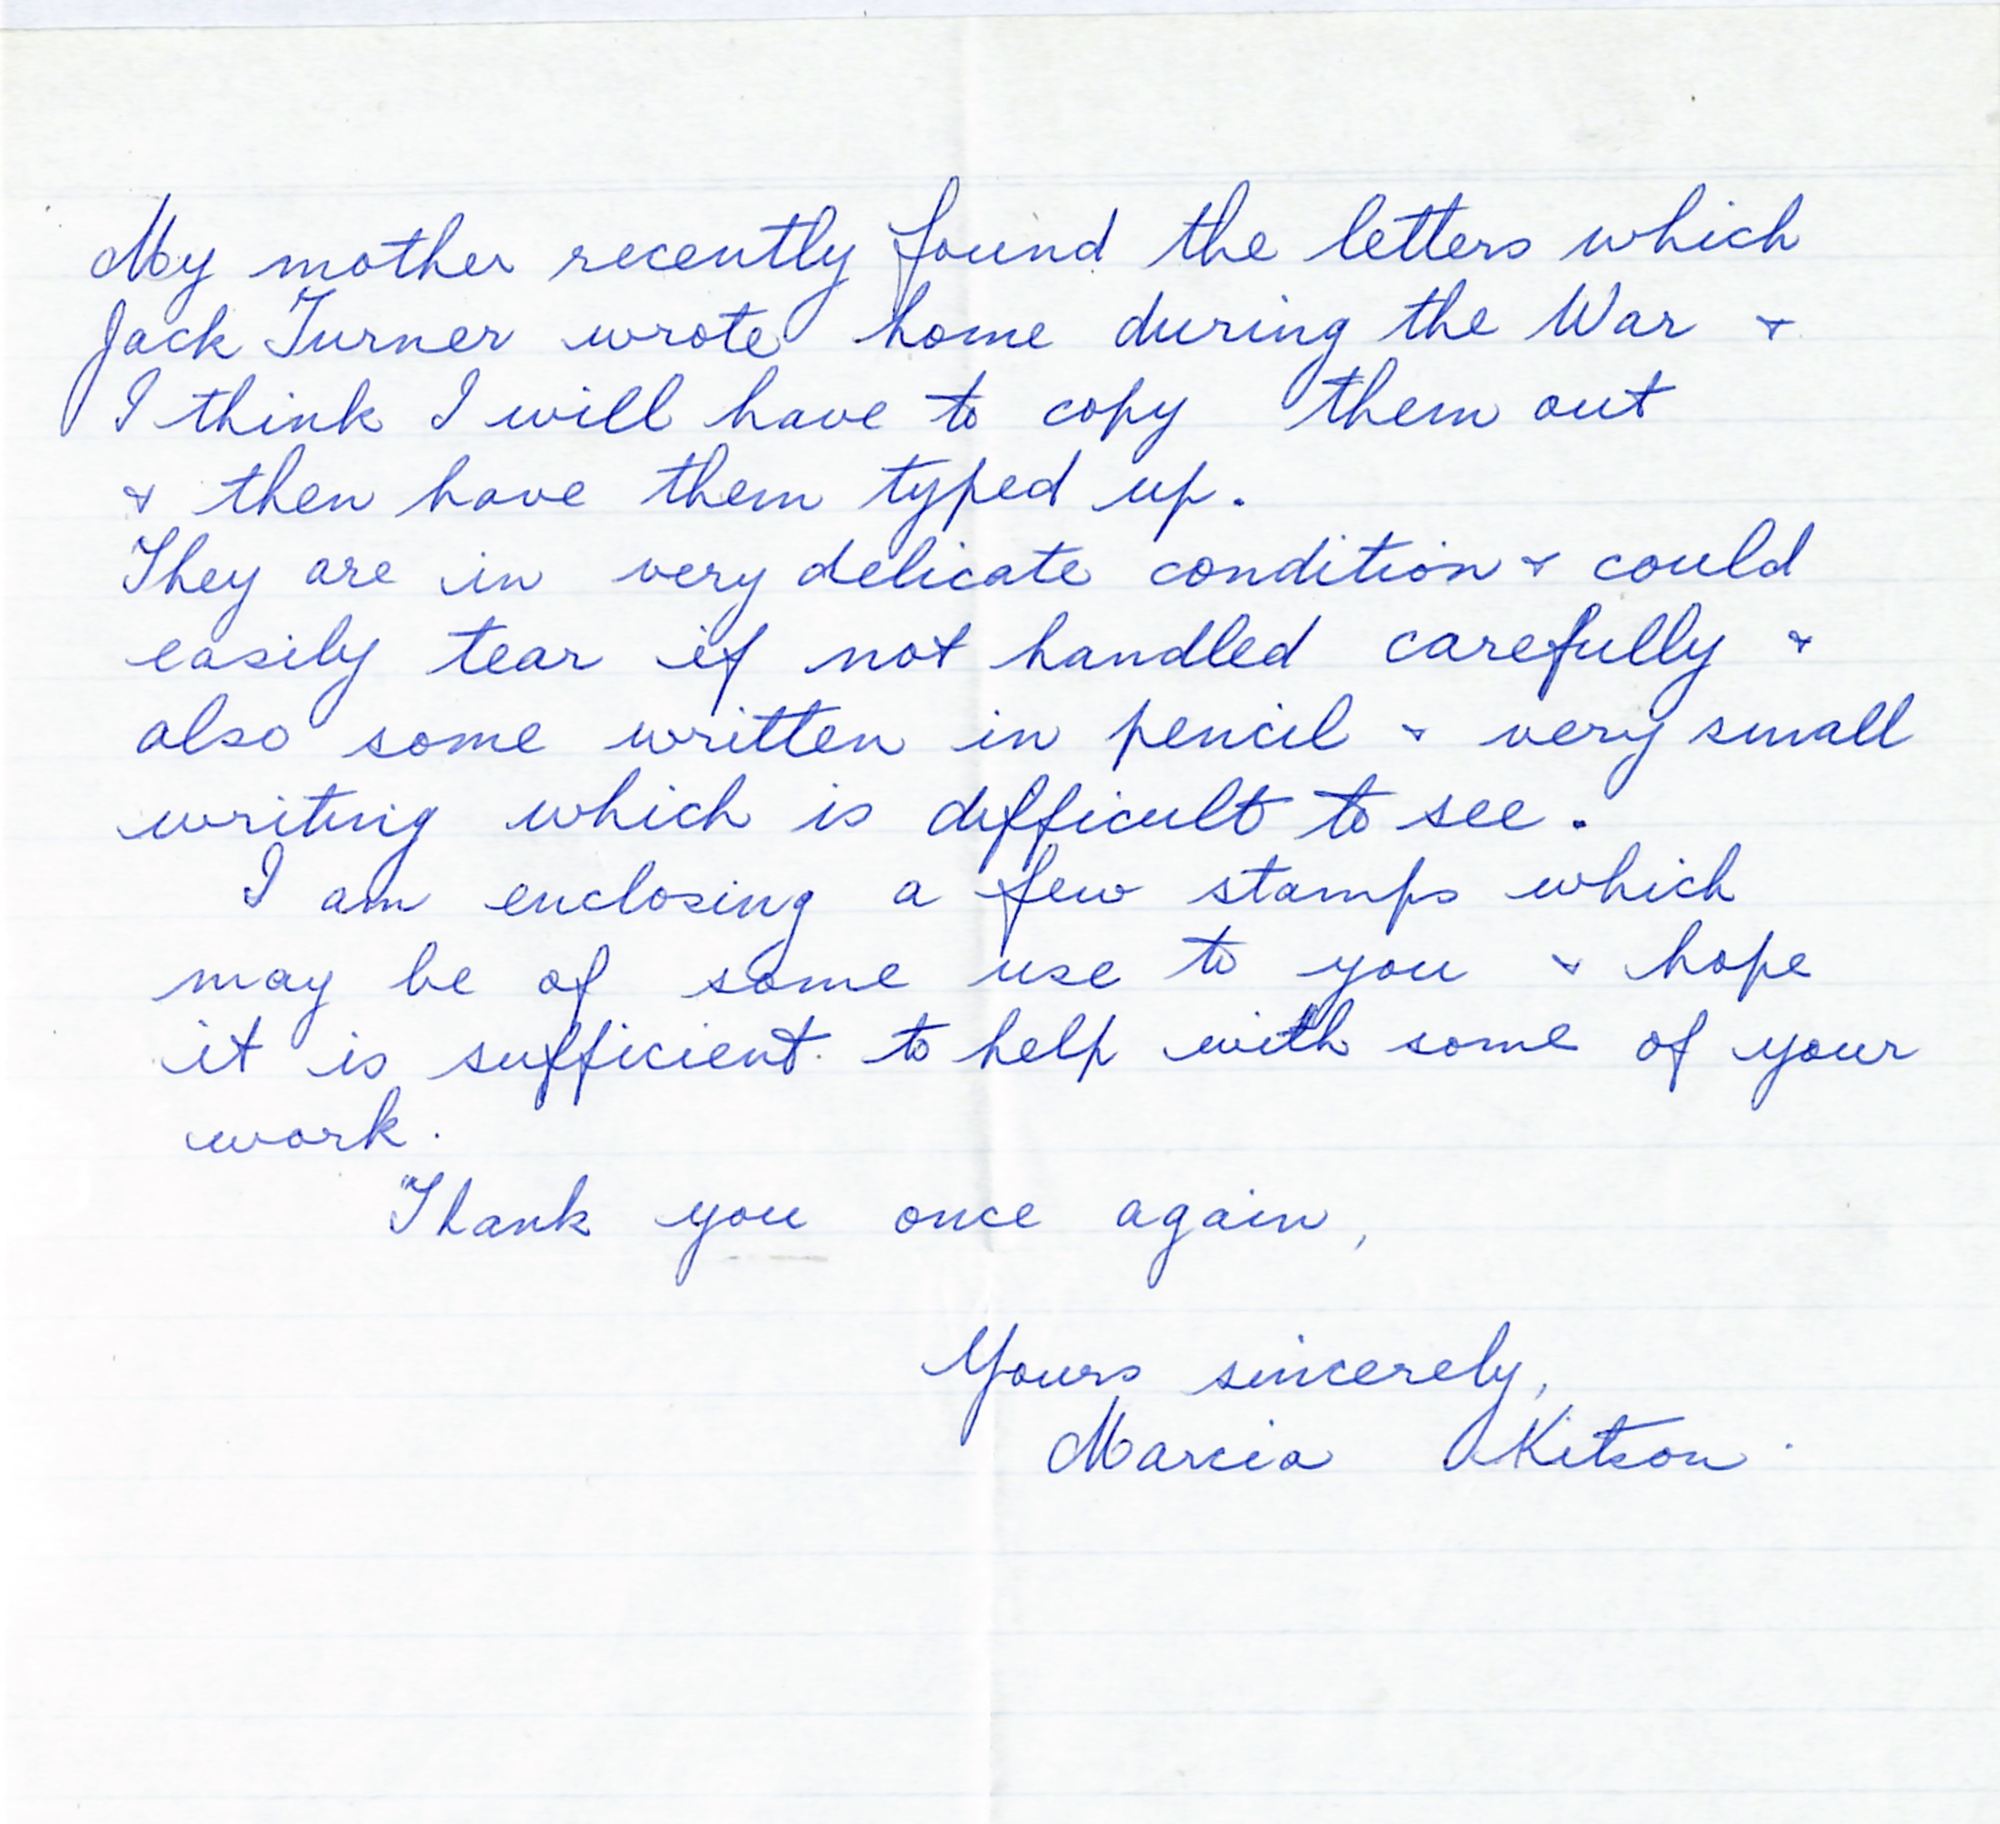 My mother recently found the letters which
Jack Turner wrote home during the War &
I think I will have to copy them out
& then have them typed up.
They are in very delicate condition & could
easily tear if not handled carefully &
also some written in pencil & very small
writing which is difficult to see.
I am enclosing a few stamps which
may be of some use to you & hope
it is sufficient to help with some of your
work.
Thank you once again,
Yours sincerely,
Marcia Kitson.